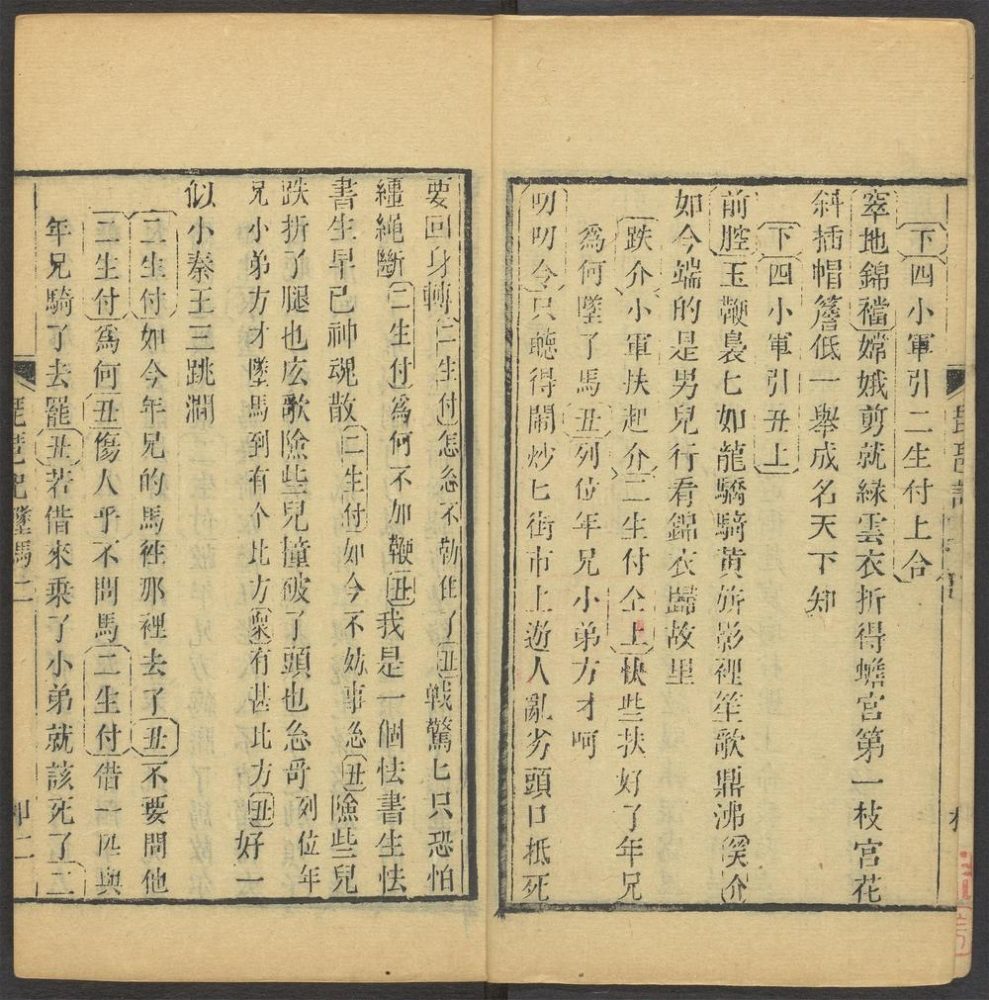 下四小軍引二生付上合
窣地錦襠嫦娥剪就綠雲衣折得蟾宮第一枝宮花
斜插帽簷低一舉成名天下知
下四小軍引丑上
前腔玉鞭裊七如龍驕騎黃旂影裡笙歌鼎沸介
如今端的是男兒行看錦衣歸故里
跌介小軍扶起介二生付仝上快些扶好了年兄
爲何墜了馬丑列位年兄小弟方才呵
叨叨令只聽得鬧炒七街市上遊人亂劣頭口抵死
要回身轉二生付怎忩不勒住了丑戰驚七只恐怕
繮繩斷二生付爲何不加鞭丑我是一個怯書生怯
書生早已神魂散二生付如今不妨事忩丑險些兒
跌折了腿也庅歌險些兒撞破了頭也忩哥列位年
兄小弟方才墜馬到有个比方衆有甚比方丑好一
似小秦王三跳澗
二生付如今年兄的馬往那裡去了丑不要問他
二生付爲何丑傷人乎不問馬二生付借一匹與
年兄騎了去罷丑若借來乘了小弟就該死了二
琵琶記墜馬二